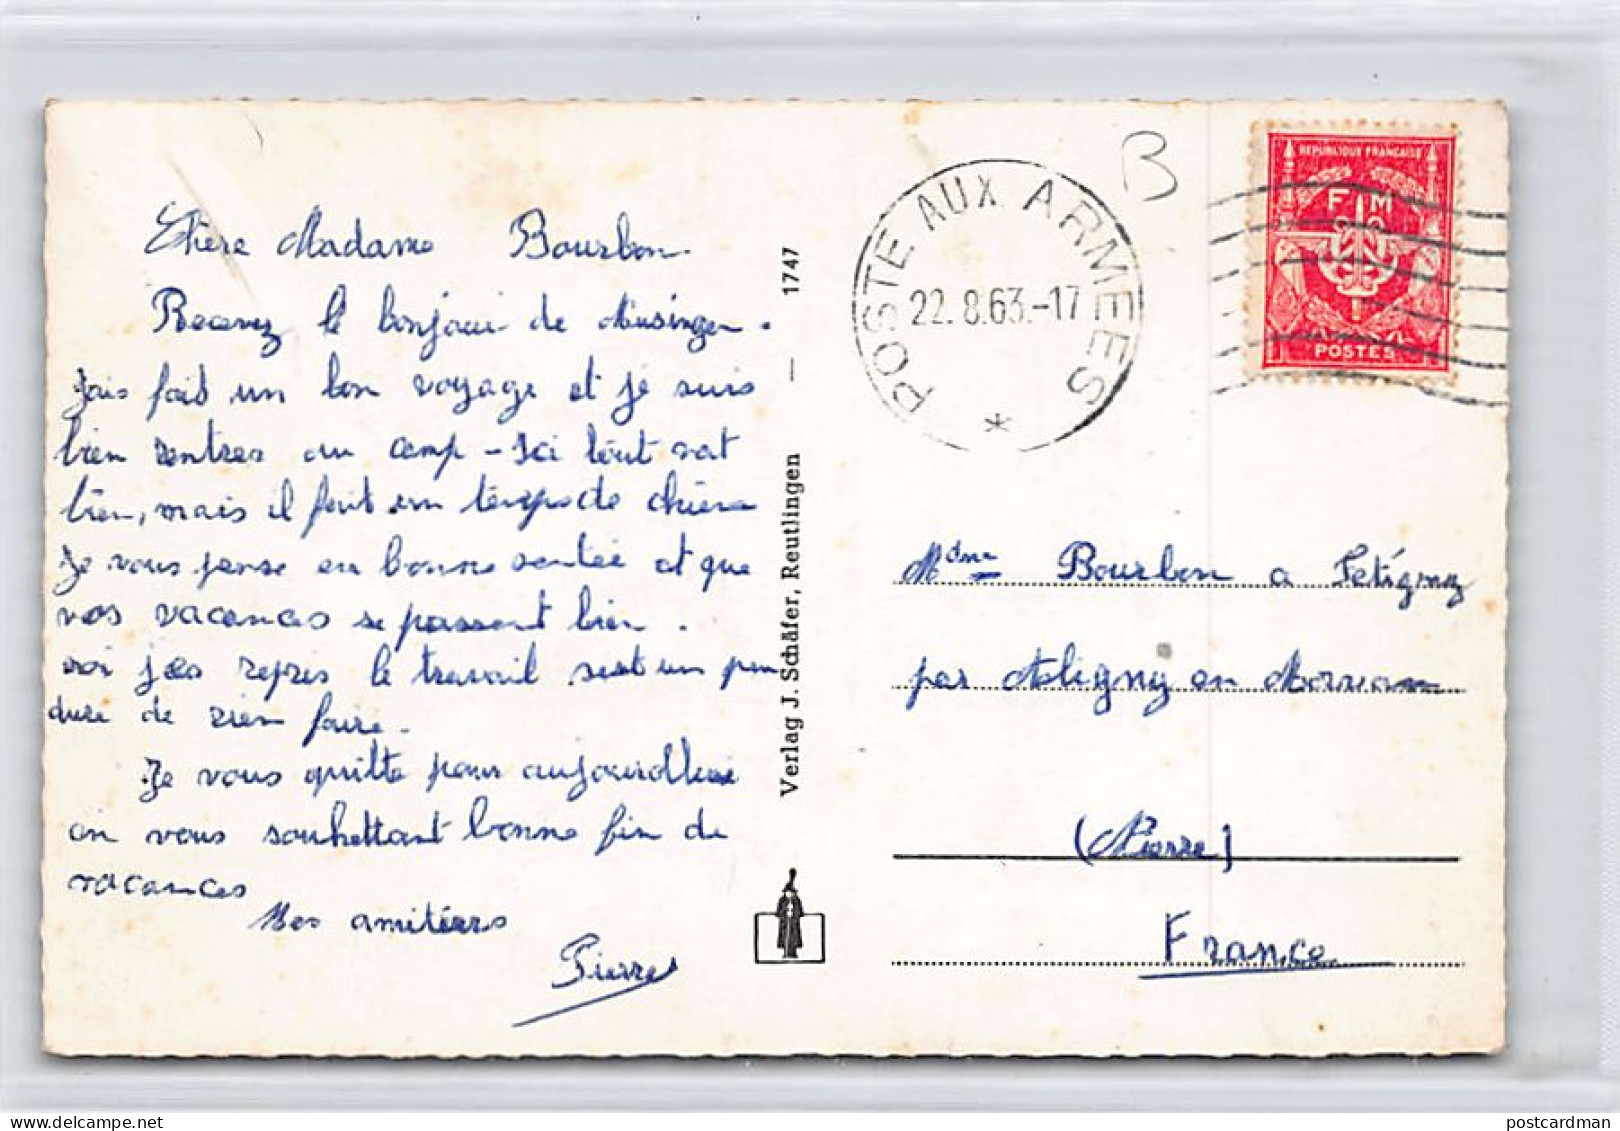 Chère Madame Bourbon.
Recevez le bonjour de Münsingen.
Jais fait un bon voyage et je suis
bien rentrer au camp - Ici tout vat
bien, mais il fait un temps de chien
Je vous pense en bonne santée et que
vos vacances se passent bien.
moi jais repris le travail sest un peu
dure de rien faire.
Je vous quitte pour aujourdhui
en vous souhettant bonne fin de
vacances
Mes amitiérs
Pierre
1747 — Verlag J. Schäfer, Reutlingen
POSTE AUX ARMEES
22.8.63.-17
*
B
REPUBLIQUE FRANÇAISE
F M
POSTES
Mdme Bourbon a Fétigny
par Aligny en Morvan
(Nièvre)
France
postcardman